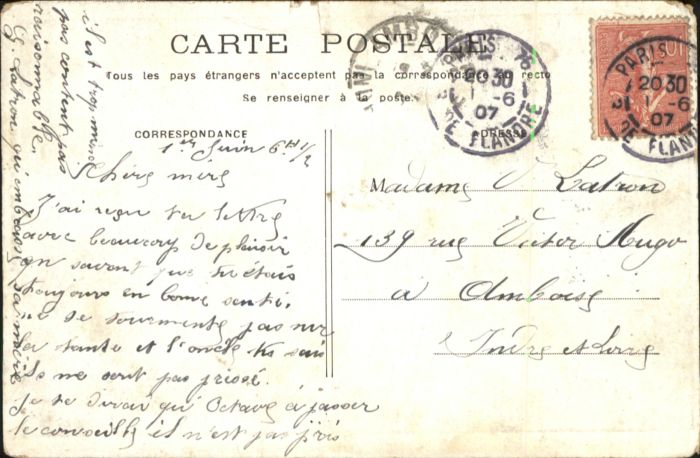 CARTE POSTALE
Tous les pays étrangers n'acceptent pas la correspondance au recto
Se renseigner à la poste.
CORRESPONDANCE
ADRESSE
PARIS
20 30
1 - 6
07
DE FLANDRE
PARIS
20 30
1 - 6
07
DE FLANDRE
1er Juin 6H 1/2
Chère mère
J'ai reçu ta lettre
avec beaucoup de plaisir
en savant que tu étais
toujours en bonne santé.
te tourmente pas
la tante et l'oncle tu sais
ne sont pas
Je te dirai qu'Octave à passer
le conseille il n'est pas pris
il est trop
pas content pas
raisonnable.
G. Latron qui embrasse sa mère
Madame V Latron
139 rue Victor Hugo
à Amboise
Indre et Loire